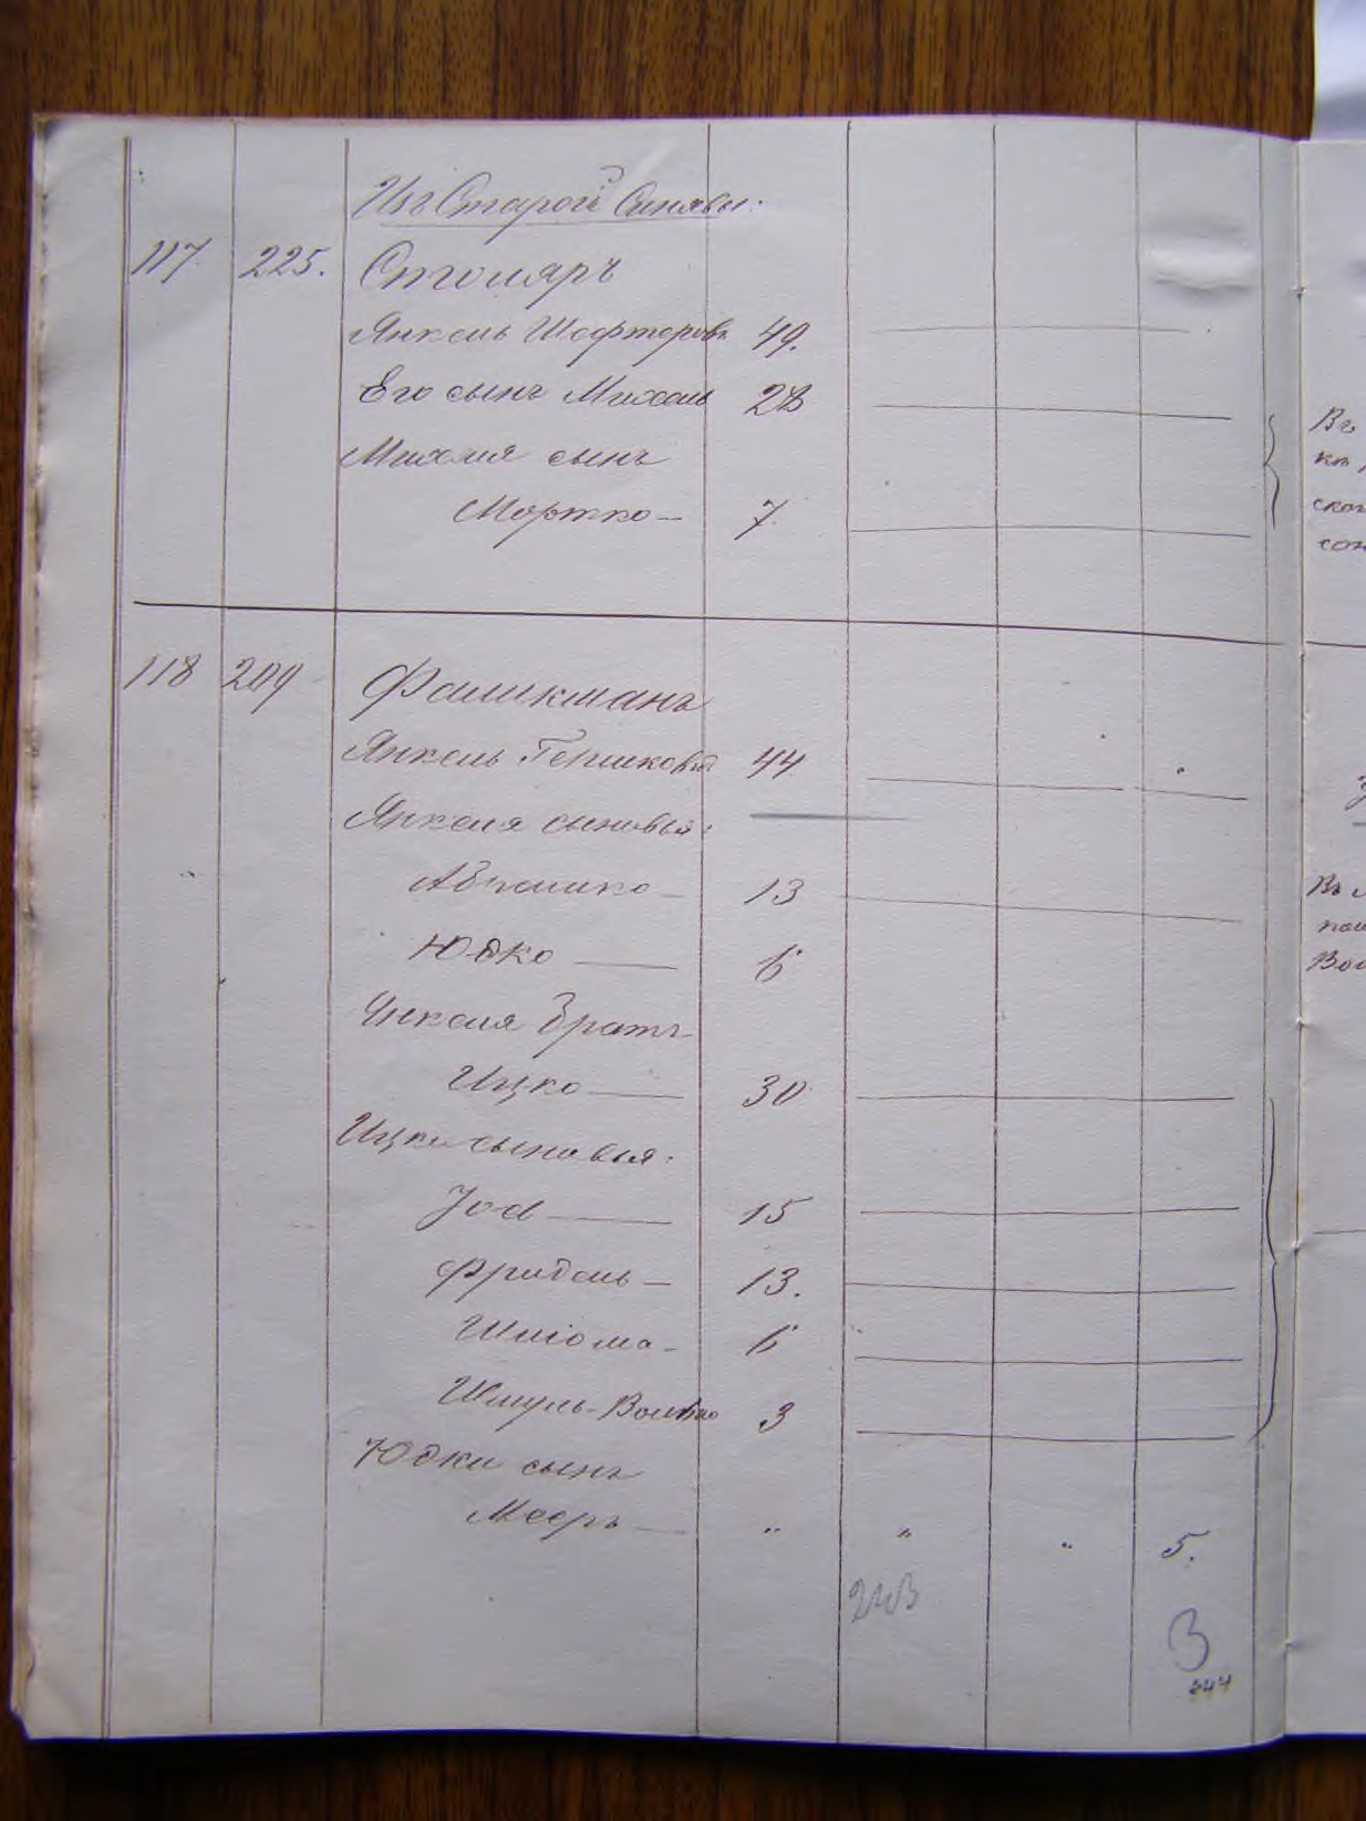 Изъ Старой Синявы:
117 225. Столяръ
Янкель Шефтеровъ 49.
Его сынъ Михель 28
Михеля сынъ
Мортко — 7.
118 209 Фаликманъ
Янкель Гершковъ 44
Янкеля сыновья:
Абрамко — 13
Юдко — 6
Янкеля братъ
Ицко — 30
Ицки сыновья:
15
Фридель — 13.
Шліома — 6
Шмуль-Волько 3
Юдки сынъ
Мееръ — " " " 5.
3
244
Въ
ской
Въ